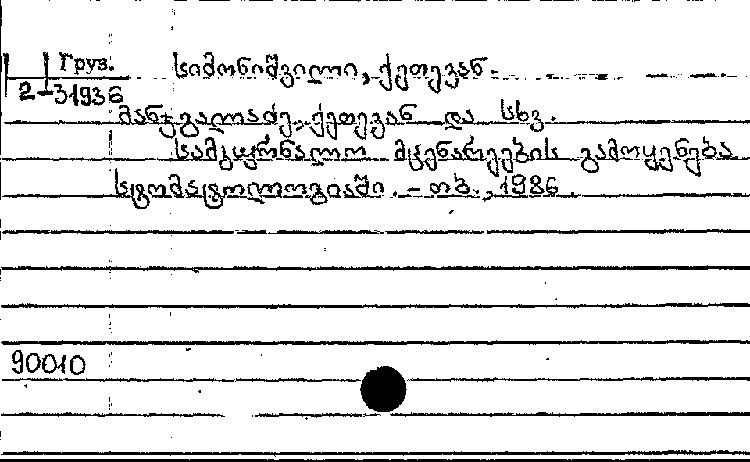 Груз.
სიმონიშვილი, ქეთევან.
2-31936
მანჯგალაძე, ქეთევან და სხვ.
სამკურნალო მცენარეების გამოყენება
სტომატოლოგიაში. – თბ., 1986.
90010